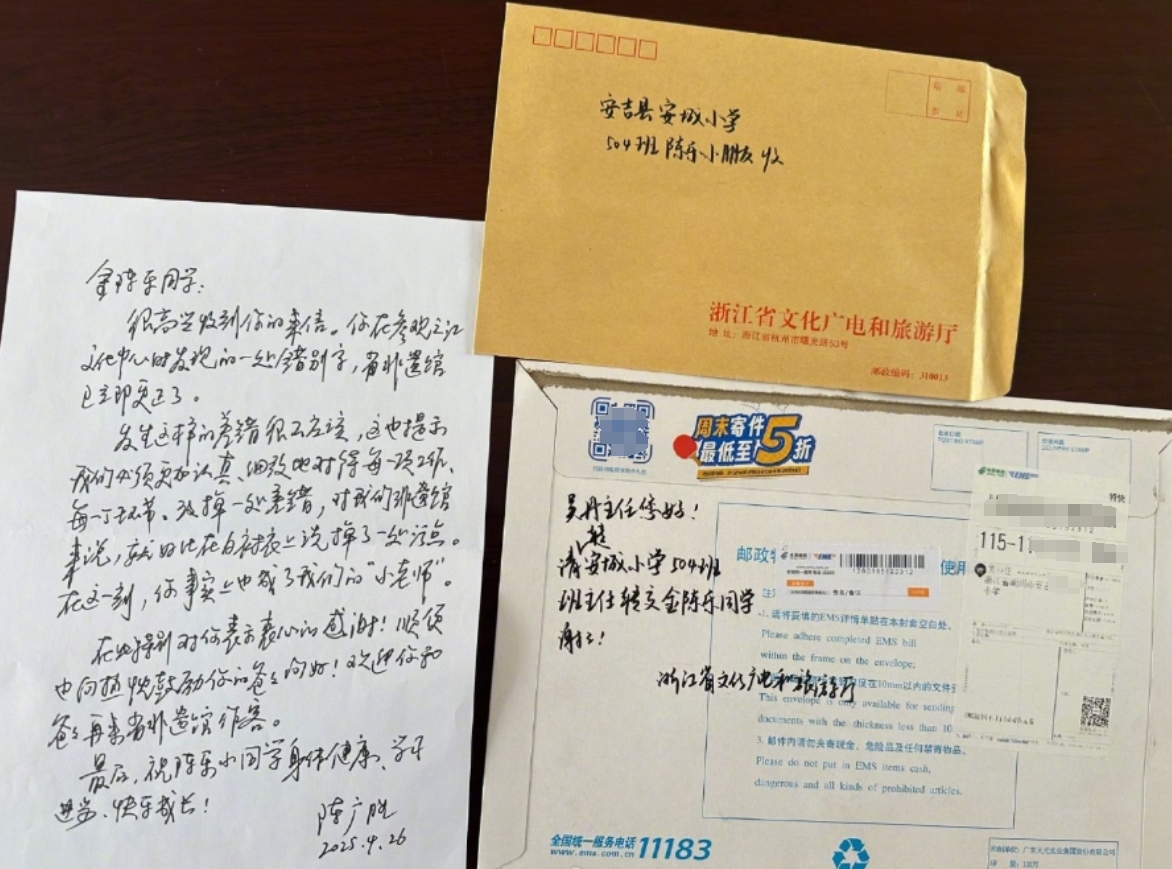 金陈乐同学：
很高兴收到你的来信。你在参观之江
文化中心时发现的一处错别字，省非遗馆
已立即更正了。
发生这样的差错很不应该，这也提示
我们必须更加认真、细致地对待每一项工作、
每一个环节。改掉一处差错，对我们非遗馆
来说，就好比在白衬衣上洗掉了一处污点。
在这一刻，你事实上也成了我们的“小老师”。
在此特别对你表示衷心的感谢！顺便
也向热忱鼓励你的爸爸问好！欢迎你和
爸爸再来省非遗馆作客。
最后，祝陈乐小同学身体健康、学习
进步、快乐成长！
陈广胜
2025.9.26
安吉县安城小学
504班 陈乐小朋友 收
浙江省文化广电和旅游厅
地址：浙江省杭州市曙光路53号
邮政编码：310013
周末寄件
最低至5折
吴丹主任您好！
请安城小学504班
班主任转交金陈乐同学
谢谢！
浙江省文化广电和旅游厅
邮政特
使用
1. 请将妥填的EMS详情单贴在本封套空白处、
Please adhere completed EMS bill
within the frame on the envelope;
度在10mm以内的文件
This envelope is only available for sending
documents with the thickness less than 10
3. 邮件内请勿夹寄现金、危险品及任何禁寄物品。
Please do not put in EMS items cash,
dangerous and all kinds of prohibited articles.
特快
115-11
小学
全国统一服务电话 11183
www.ems.com.cn